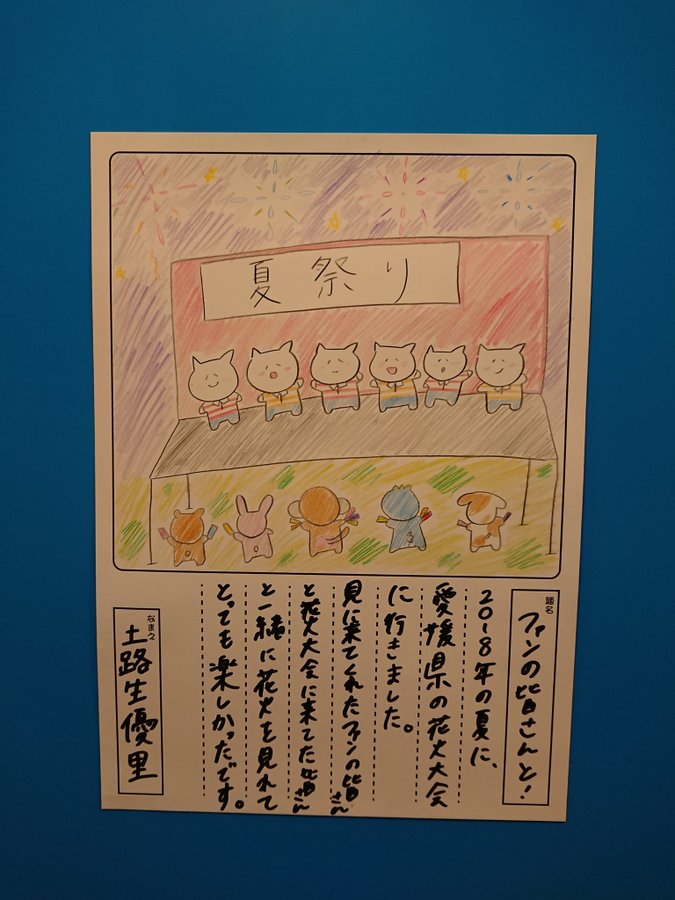 夏祭り
題名
ファンの皆さんと!
2018年の夏に、
愛媛県の花火大会
に行きました。
見に来てくれたファンの皆さん
と花火大会に来てた皆さん
と一緒に花火を見れて
とっても楽しかったです。
なまえ
土路生優里